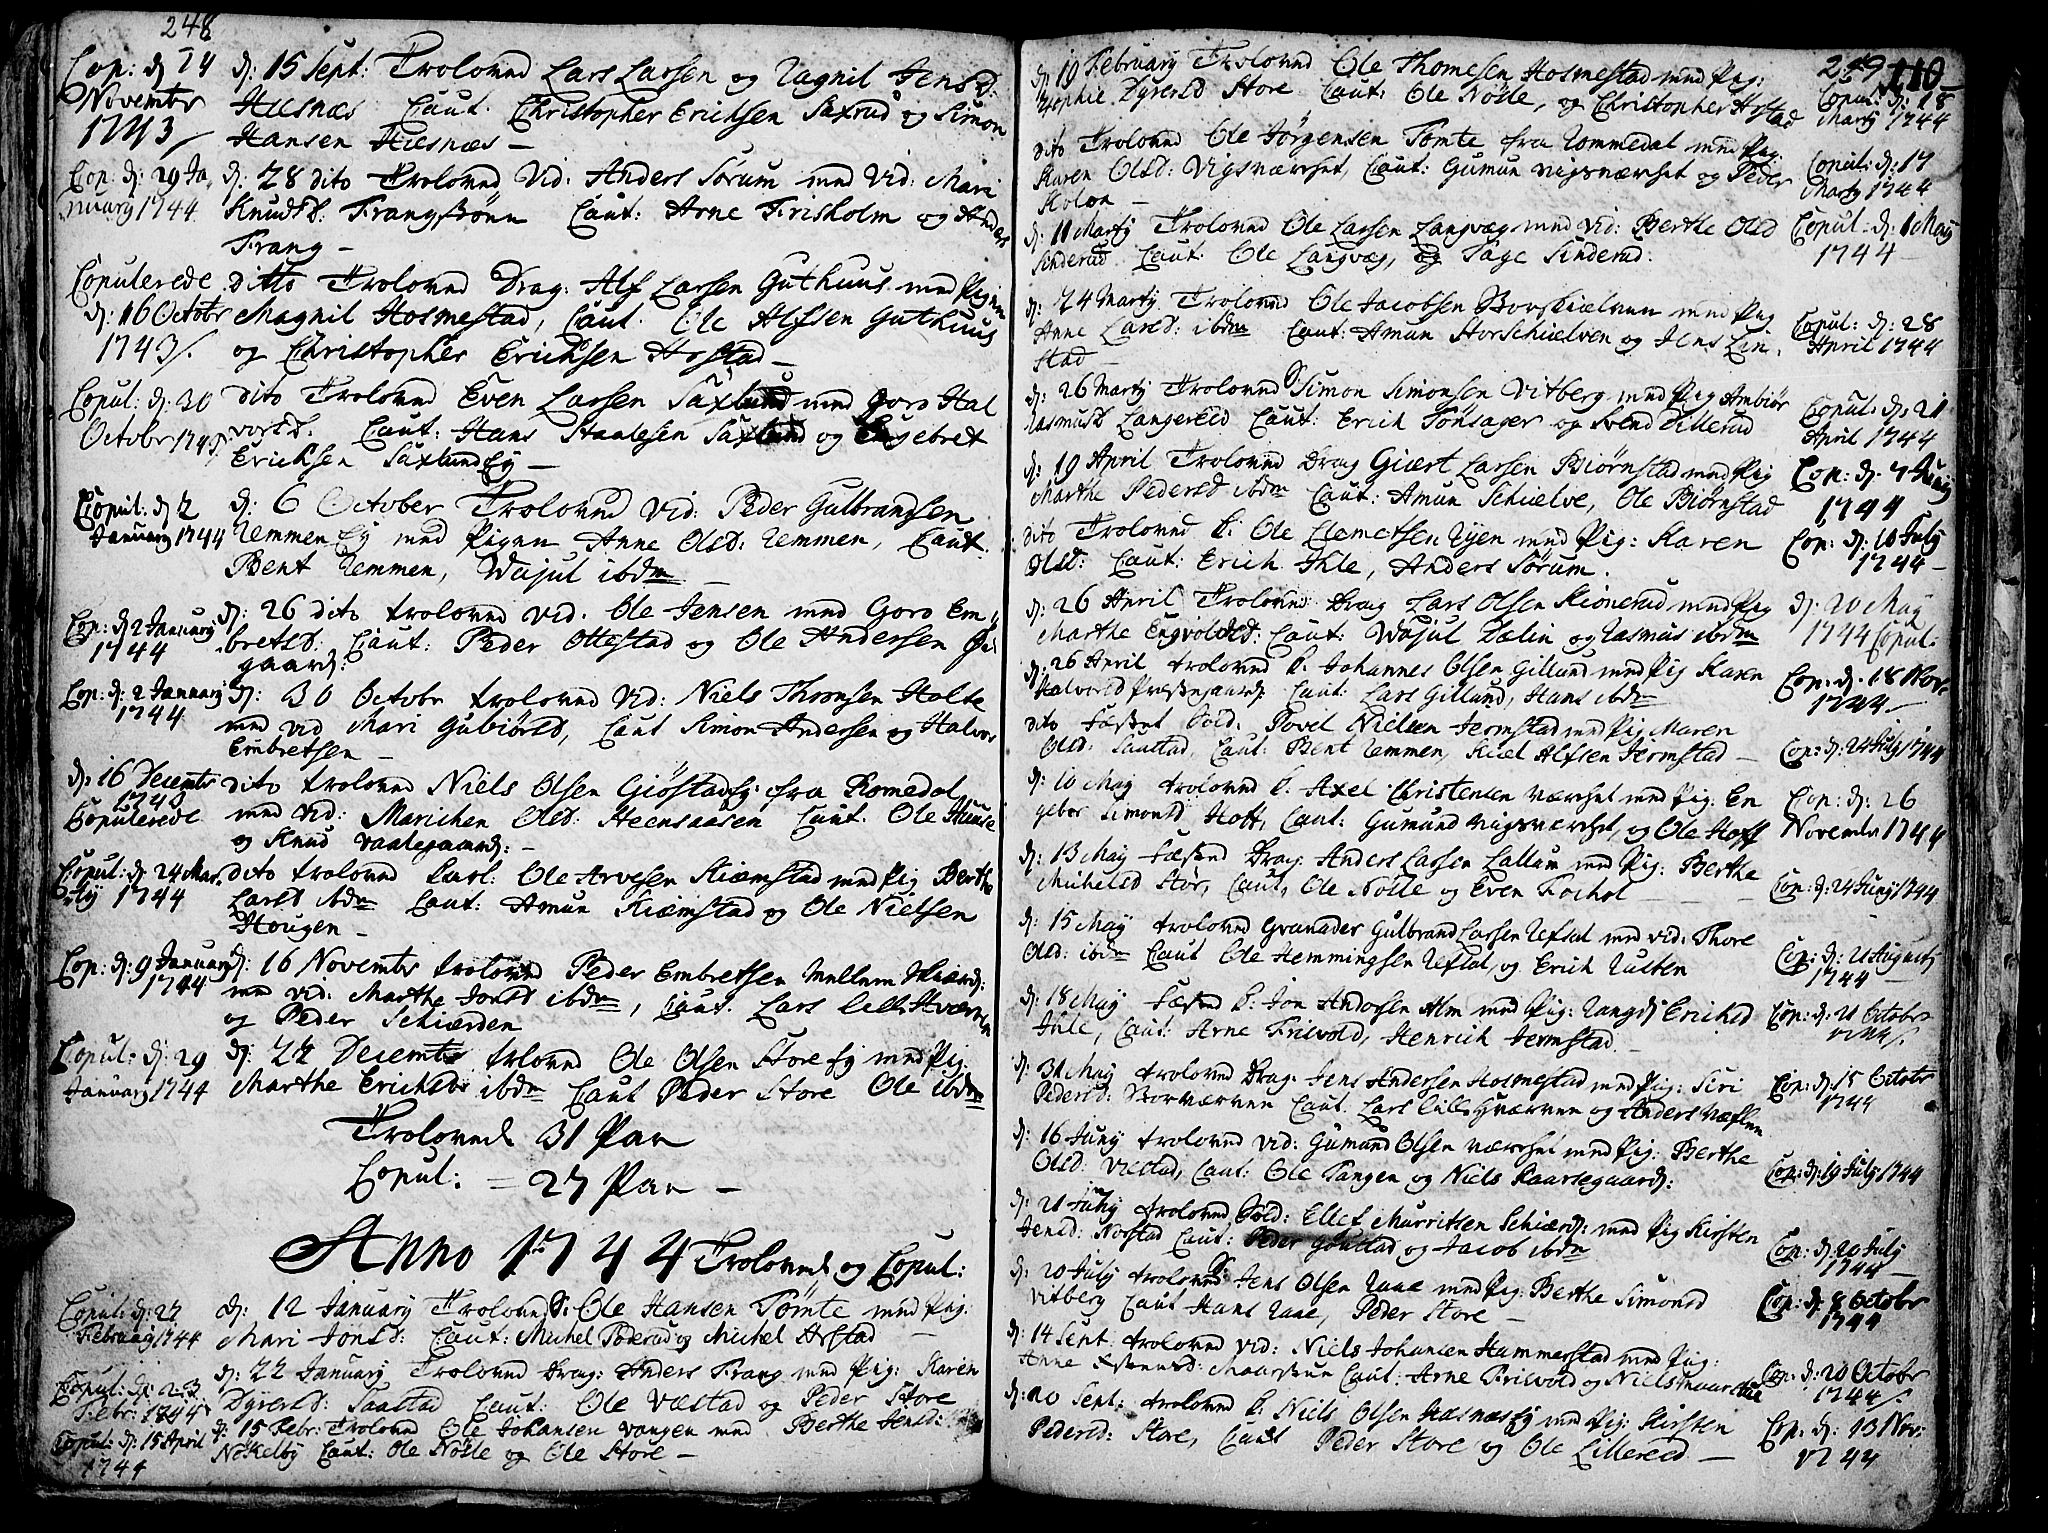 248
Cop: d 24 Novembr 1743
d: 15 Sept: Troloved Lars Larsen og Ragnil Jensd:
Huusnæs Caut. Christopher Erichsen Saxrud og Simon
Hansen Huusnæs —
Cop: d: 29 Januarij 1744
d: 28 dito Troloved Vid: Anders Sørum med Vid: Mari
Knudsd: Frangsøun Caut: Arne Frisholm og Anders
Frang —
Copulerede d: 16 Octobr 1743
ditto Troloved Drag: Alf Larsen Guthuus med Pigen
Magnil Hosmestad, Caut. Ole Alfsen Guthuus
og Christopher Erichsen Hofstad —
Copul: d: 30 Octobr 1743
dito Troloved Even Larsen Saxlund med Goro Hal
vorsd: Caut: Hans Staalesen Saxlund og Engebret
Erichsen Saxlund Ey —
Copul: d 2 Januarij 1744
d: 6 October Troloved Vid: Peder Gulbransen
Remmen Ey med Pigen Anne Olsd: Remmen, Caut.
Bent Remmen, Wajul ibdm —
Cop: d 2 Januarij 1744
d: 26 dito troloved vid. Ole Jensen med Goro Em
bretsd: Caut: Peder Ottestad og Ole Andersen
gaard:
Cop: d: 2 Januarij 1744
d: 30 Octobr troloved Vid: Niels Thomsen Holte
med vid Mari Gubiørsd, Caut Simon Andersen og Halvor
Embretsen —
d: 16 Decembr 1743 Copulerede
dito troloved Niels Olsen Giøstad Ey: fra Romedal
med vid: Marichen Olsd: Steensaasen Caut: Ole Huuse
og Knud Vaalegaard: —
Copul: d: 24 Martij 1744
dito trolovet Carl: Ole Arvesen Kiemstad med Pig Berthe
Larsd ibdm Caut: Amun Kiæmstad og Ole Nielsen
Hougen —
Cop: d: 9 Januarij 1744
d: 16 Novembr troloved Peder Embretsen Mellem Skiærd:
med vid: Marthe Jonsd ibdm, Caut. Lars lille Hværven
og Peder Schiærden
Copul: d: 29 Januarij 1744
d: 22 Decembr trlovd Ole Olsen Store Ey med Pig
Marthe Erichsdr ibdm Caut Peder Store Ole ibdm
Troloved 31 Par
Copul: = 27 Par —
Anno 1744 Troloved og Copul:
Copul: d: 27 Februarij 1744
d: 12 Januarij Troloved S: Ole Hansen Tomte med Pig.
Mari Jonsd: Caut: Michel Poderud og Michel Hofstad —
Copul: d: 23 Febr: 1744
d: 22 Januarij Troloved Drag: Anders Frang med Pig: Karen
Dyresd: Saastad Caut: Ole Væstad og Peder Store
Copul: d: 15 April 1744
d: 15 Febr: Troloved Ole Johansen Vangen med Berthe Jensd:
Nøkelby Caut: Ole Nøsle og Ole Store —
249 110
d: 19 February Troloved Ole Thomesen Hosmestad med Pig:
Sophie Dyresd Store Caut: Ole Nøsle, og Christopher Hofstad
Copul: d: 18 Martij 1744
dito Troloved Ole Jørgensen Tomte fra Rommedal med Pig:
Karen Olsd: Vigsværket, Caut: Gumun Vigsværket og Peder
Kolon —
Copul: d: 17 Martij 1744
d: 11 Martij Troloved Ole Larsen Langvæg med Vid: Berthe Olsd
Sinderud Caut: Ole Langvæg, og Tage Sinderud.
Copul: d: 1 Maij 1744 —
d: 24 Martij Troloved Ole Jacobsen Borskiælven med Pig
Anne Larsd: ibdm Caut: Amun Horschielven og Jens Lin
stad —
Copul: d: 28 April 1744
d: 26 Martij Troloved S: Simon Simonsen Vitberg med Pig Ambiør
Rasmusd Langereid Caut: Erich Tønsager og Svend Tillerud
Copul: d: 21 April 1744
d: 19 April Troloved Drag Giært Larsen Biørnstad med Pig
Marthe Pedersd ibdm Caut: Amun Schielve, Ole Biørnstad
Cop: d: 7 Junij 1744
dito Troloved S: Ole Clemetsen Ryen med Pig: Karen
Olsd: Caut: Erich Ihle, Anders Sørum.
Cop: d: 10 July 1744 —
d: 26 April Troloved Drag Lars Olsen Kionerud med Pig
Marthe Engvoldsd: Caut: Wajul Tælin og Rasmus ibdm
d: 20 May 1744 Copul:
d: 26 April troloved S. Johannes Olsen Gillund med Pig Karen
Halvorsd Præstegaard Caut: Lars Gillund, Hans ibdm
Cop: d: 18 Nov: 1744
dito Fæsted Sold: Povel Nielsen Jermstad med Pig Maren
Olsd: Saastad, Caut: Bent Remmen, Kield Alfsen Jermstad —
Cop: d: 24 Junij 1744
d: 10 May troloved S. Axel Christensen Værket med Pig: En
gebor Simonsd Hoff, Caut: Gumund Vigsværket, og Ole Hoff
Cop: d: 26 Novembr 1744
d: 13 May Fæsted Drag: Anders Larsen Lallum med Pig: Berthe
Michelsd Stør, Caut, Ole Nøsle og Even Fochol —
Cop: d: 24 Junij 1744
d: 15 May troloved Granader Gulbrand Larsen Refsal med vid: Thore
Olsd: ibdm Caut Ole Hemmingsen Refsal, og Erich Rusten
Cop: d: 21 Augusti 1744 —
d: 18 May Fæsted S. Jon Andersen Alm med Pig: Rangdj Erichsd
Ihle, Caut: Arne Frisvold, Henrich Jermstad —
Cop: d: 21 Octobr 1744
d: 31 May troloved Drag: Jens Andersen Hosmestad med Pig: Siri
Pedersd: Storværven Caut. Lars lille Hværven og Anders Næflen
Cop: d: 15 Octobr 1744
d: 16 Juny troloved vid: Gumund Olsen Værket med Pig: Berthe
Olsd: Væstad, Caut: Ole Tangen og Niels Kaarsegaard:
Cop: d: 19 July 1744
d: 21 July troloved Sold: Ellef Murritsen Schiærd: med Pig Kirsten
Jensd: Norstad Caut: Peder Gonstad og Jacob ibdm
Cop: d: 20 July 1744 —
d: 20 July troloved S: Jens Olsen Raae med Pig: Berthe Simonsd
Vitberg Caut Hans Raae, Peder Store —
Cop: d: 8 Octobr 1744
d: 14 Sept. troloved vid: Niels Johansen Hammerstad med Pig:
Anne Maarstun Caut: Arne Frisvold og Niels Maarstun
Cop: d: 20 Octobr 1744
d: 20 Sept: troloved S. Niels Olsen Hæsnæs Ey med Pig: Kirsten
Pedersd: Store, Caut Peder Store og Ole Lillereed —
Cop: d: 13 Nov: 1744